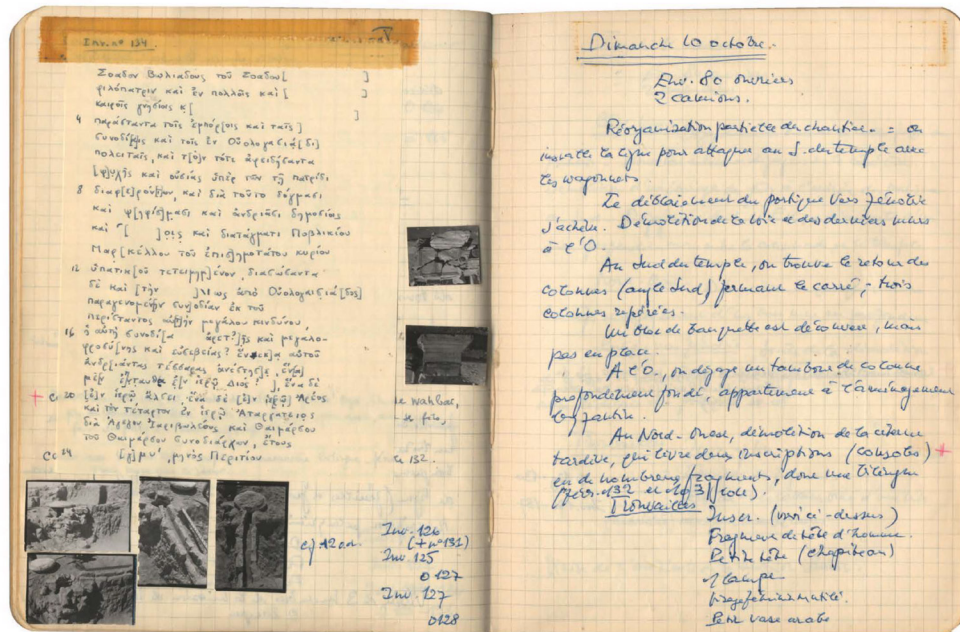 Inv. nº 134
Σοαδον Βωλιαδους τοῦ Σοαδου[ ]
φιλόπατριν καὶ ἐν πολλοῖς καὶ [ ]
καιροῖς γνησίως κ[ ]
4 παραστάντα τοῖς ἐμπόρ[οις καὶ ταῖς]
συνοδίαις καὶ τοῖς ἐν Οὐολογασιά[δι]
πολείταις, καὶ τ[ό]ν τότε ἀφειδήσαντα
[ψ]υχῆς καὶ οὐσίας ὑπὲρ τῶν τῇ πατρίδι
8 διαφ[ε]ρόν[τ]ων, καὶ διὰ τοῦτο δόγμασι
καὶ ψ[ηφίσ]μασι καὶ ἀνδριᾶσι δημοσίοις
καὶ [ ]οις καὶ διατάγματι Ποβλικίου
Μαρ[κέλλου τοῦ ἐπισημοτάτου κυρίου
12 ὑπατικ[οῦ τετειμημ]ένον, διασώσαντα
δὲ καὶ [τὴν ] ἀπὸ Οὐολογασιά[δος]
παραγενομένην συν]οδίαν ἐκ τοῦ
περιστάντος αὐτ]ὴν μεγάλου κινδύνου,
16 ἡ αὐτὴ συνοδί[α ἀρετ?]ῆς καὶ μεγαλο-
φροσύ[νης καὶ εὐσεβείας? ἕν]εκα αὐτοῦ
ἀνδρ[ιάντας τέσσαρας ἀνέστησ]ε, ἕν[α]
μὲν ἐ[νταῦθα ἐ]ν ἱερῷ Διός ], ἕνα δὲ
+ C 20 [ἐ]ν ἱερῷ ἄλσει, ἕνα δὲ [ἐ]ν ἱερῷ] Ἄρεος
καὶ τὸν τέταρτον ἐν ἱερῷ Ἀταργάτειος
διὰ Ἀγεγον Ἰαριβωλέους καὶ Θαιμάρσου
τοῦ Θαιμάρσου συνοδιάρχων, ἔτους
24 [γ]μυ', μηνὸς Περιτίου
132.
cf 12 oct.
Inv. 126
(+ nº 131)
Inv. 125
0127
Inv. 127
0128
Dimanche 10 octobre.
Env. 80 ouvriers
2 camions.
Réorganisation partielle du chantier. = on
la ligne pour attaque au S. du temple avec
les wagonnets.
Le déblaiement du portique vers
s'achève. Démolition de la voie et des derniers murs
à l'O.
Au Sud du temple, on trouve le retour des
colonnes (angle Sud) fermant le carré, – trois
colonnes repérées.
Un bloc de banquette est découvert, mais
pas en place.
A l'O., on dégage un tambour de colonne
profondément fondé, appartenant à l'aménagement
byzantin.
Au Nord-Ouest, démolition de la citerne
tardive, qui livre deux inscriptions (consoles) +
et de nombreux fragments, dont une bilingue
132 et 103
Trouvailles Inscr. (voir ci-dessus)
Fragment de tête d'homme.
Petite tête (chapiteau)
1 lampe
mutilé.
Petit vase arabe